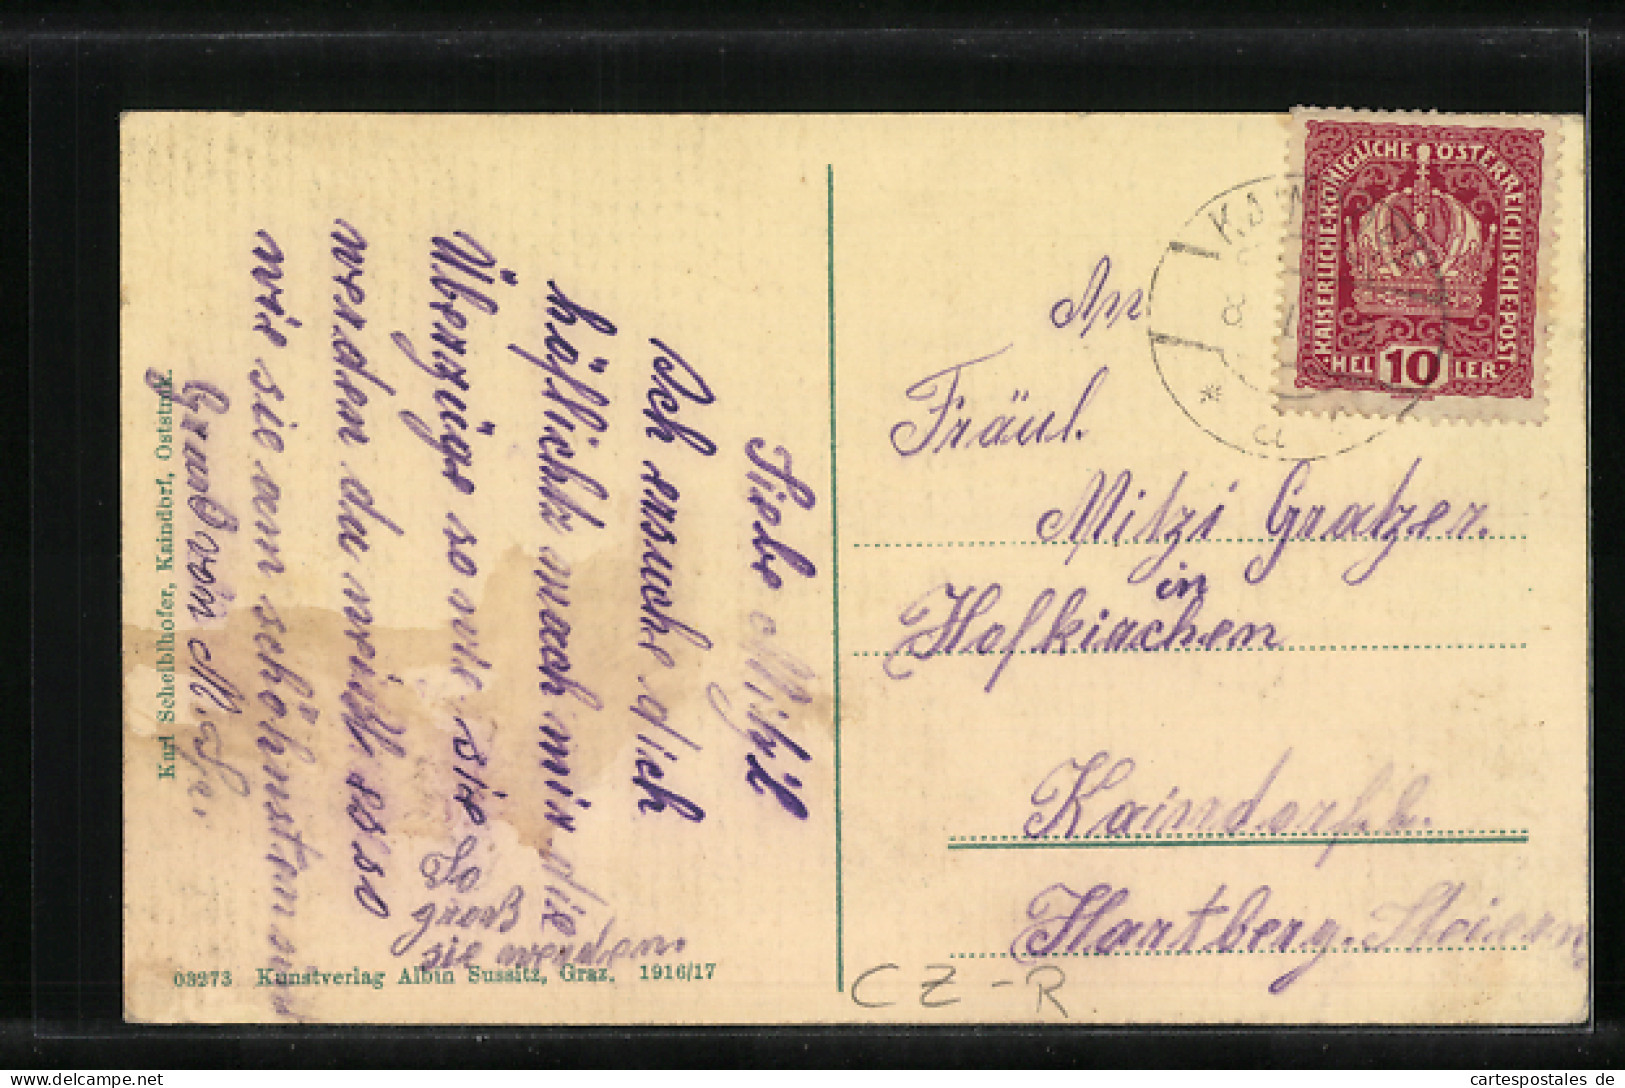 Liebe Mizil
Ich ersuche dich
höflichst mach mir die
Überzüge so wie sie
werden du weißt es so
wie sie am schönsten
Gruß von
So
groß
sie werden.
Karl Scheiblhofer, Kaindorf, Oststmk.
03273 Kunstverlag Albin Sussitz, Graz. 1916/17
KAISERLICHE·KÖNIGLICHE ÖSTERREICHISCHE·POST
HEL 10 LER
An
Fräul.
Mitzi Gratzer.
in
Hofkirchen
Kaindorf b.
Hartberg. Steierm
CZ-R